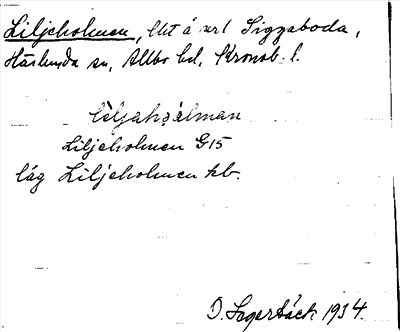 Liljeholmen, lht å url Siggaboda,
Härlunda sn, Allbo hd, Kronob. l.
liljahɔlman
Liljeholmen G15
låg Liljeholmen kb.
D. Segerbäck 1934.